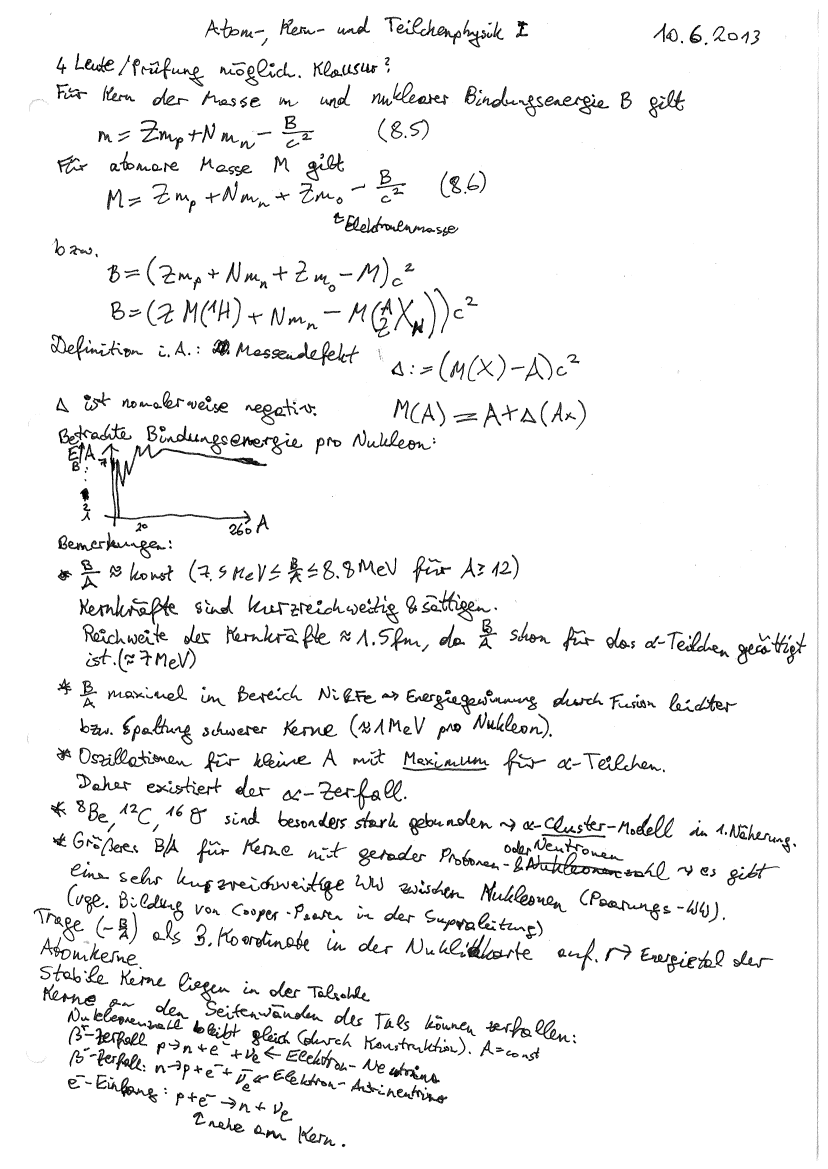 Atom-, Kern- und Teilchenphysik I 10.6.2013
4 Leute/Prüfung möglich. Klausur?
Für Kern der Masse m und nuklearer Bindungsenergie B gilt
m = Zm_p + Nm_n - B/c² (8.5)
Für atomare Masse M gilt
M = Zm_p + Nm_n + Zm_0 - B/c² (8.6)
↑Elektronenmasse
bzw.
B = (Zm_p + Nm_n + Zm_0 - M)c²
B = (Z M(¹H) + Nm_n - M(^A_Z X_N))c²
Definition i.A.: Massendefekt Δ := (M(X) - A)c²
Δ ist normalerweise negativ. M(A) = A + Δ(Ax)
Betrachte Bindungsenergie pro Nukleon:
E/A
B
7
2
1
20 260 A
Bemerkungen:
* B/A ≈ konst (7.5 MeV ≤ B/A ≤ 8.8 MeV für A ≥ 12)
Kernkräfte sind kurzreichweitig & sättigen.
Reichweite der Kernkräfte ≈ 1.5fm, da B/A schon für das α-Teilchen gesättigt
ist. (≈ 7 MeV)
* B/A maximal im Bereich Ni&Fe ⇝ Energiegewinnung durch Fusion leichter
bzw. Spaltung schwerer Kerne (≈ 1 MeV pro Nukleon).
* Oszillationen für kleine A mit Maximum für α-Teilchen.
Daher existiert der α-Zerfall.
* ⁸Be, ¹²C, ¹⁶O sind besonders stark gebunden ⇝ α-Cluster-Modell in 1. Näherung.
* Größeres B/A für Kerne mit gerader Protonen- & Nukleonenzahl oder Neutronen ⇝ es gibt
eine sehr kurzreichweitige WW zwischen Nukleonen (Paarungs-WW).
(vgl. Bildung von Cooper-Paaren in der Supraleitung)
Trage (-B/A) als 3. Koordinate in der Nuklidkarte auf. ↦ Energietal der
Atomkerne
Stabile Kerne liegen in der Talsohle
Kerne an den Seitenwänden des Tals können zerfallen:
Nukleonenzahl bleibt gleich (durch Konstruktion). A = const
β⁺-Zerfall p → n + e⁻ + ν_e ← Elektron-Neutrino
β⁻-Zerfall: n → p + e⁻ + ν̄_e ← Elektron-Antineutrino
e⁻-Einfang: p + e⁻ → n + ν_e
↑nahe am Kern.